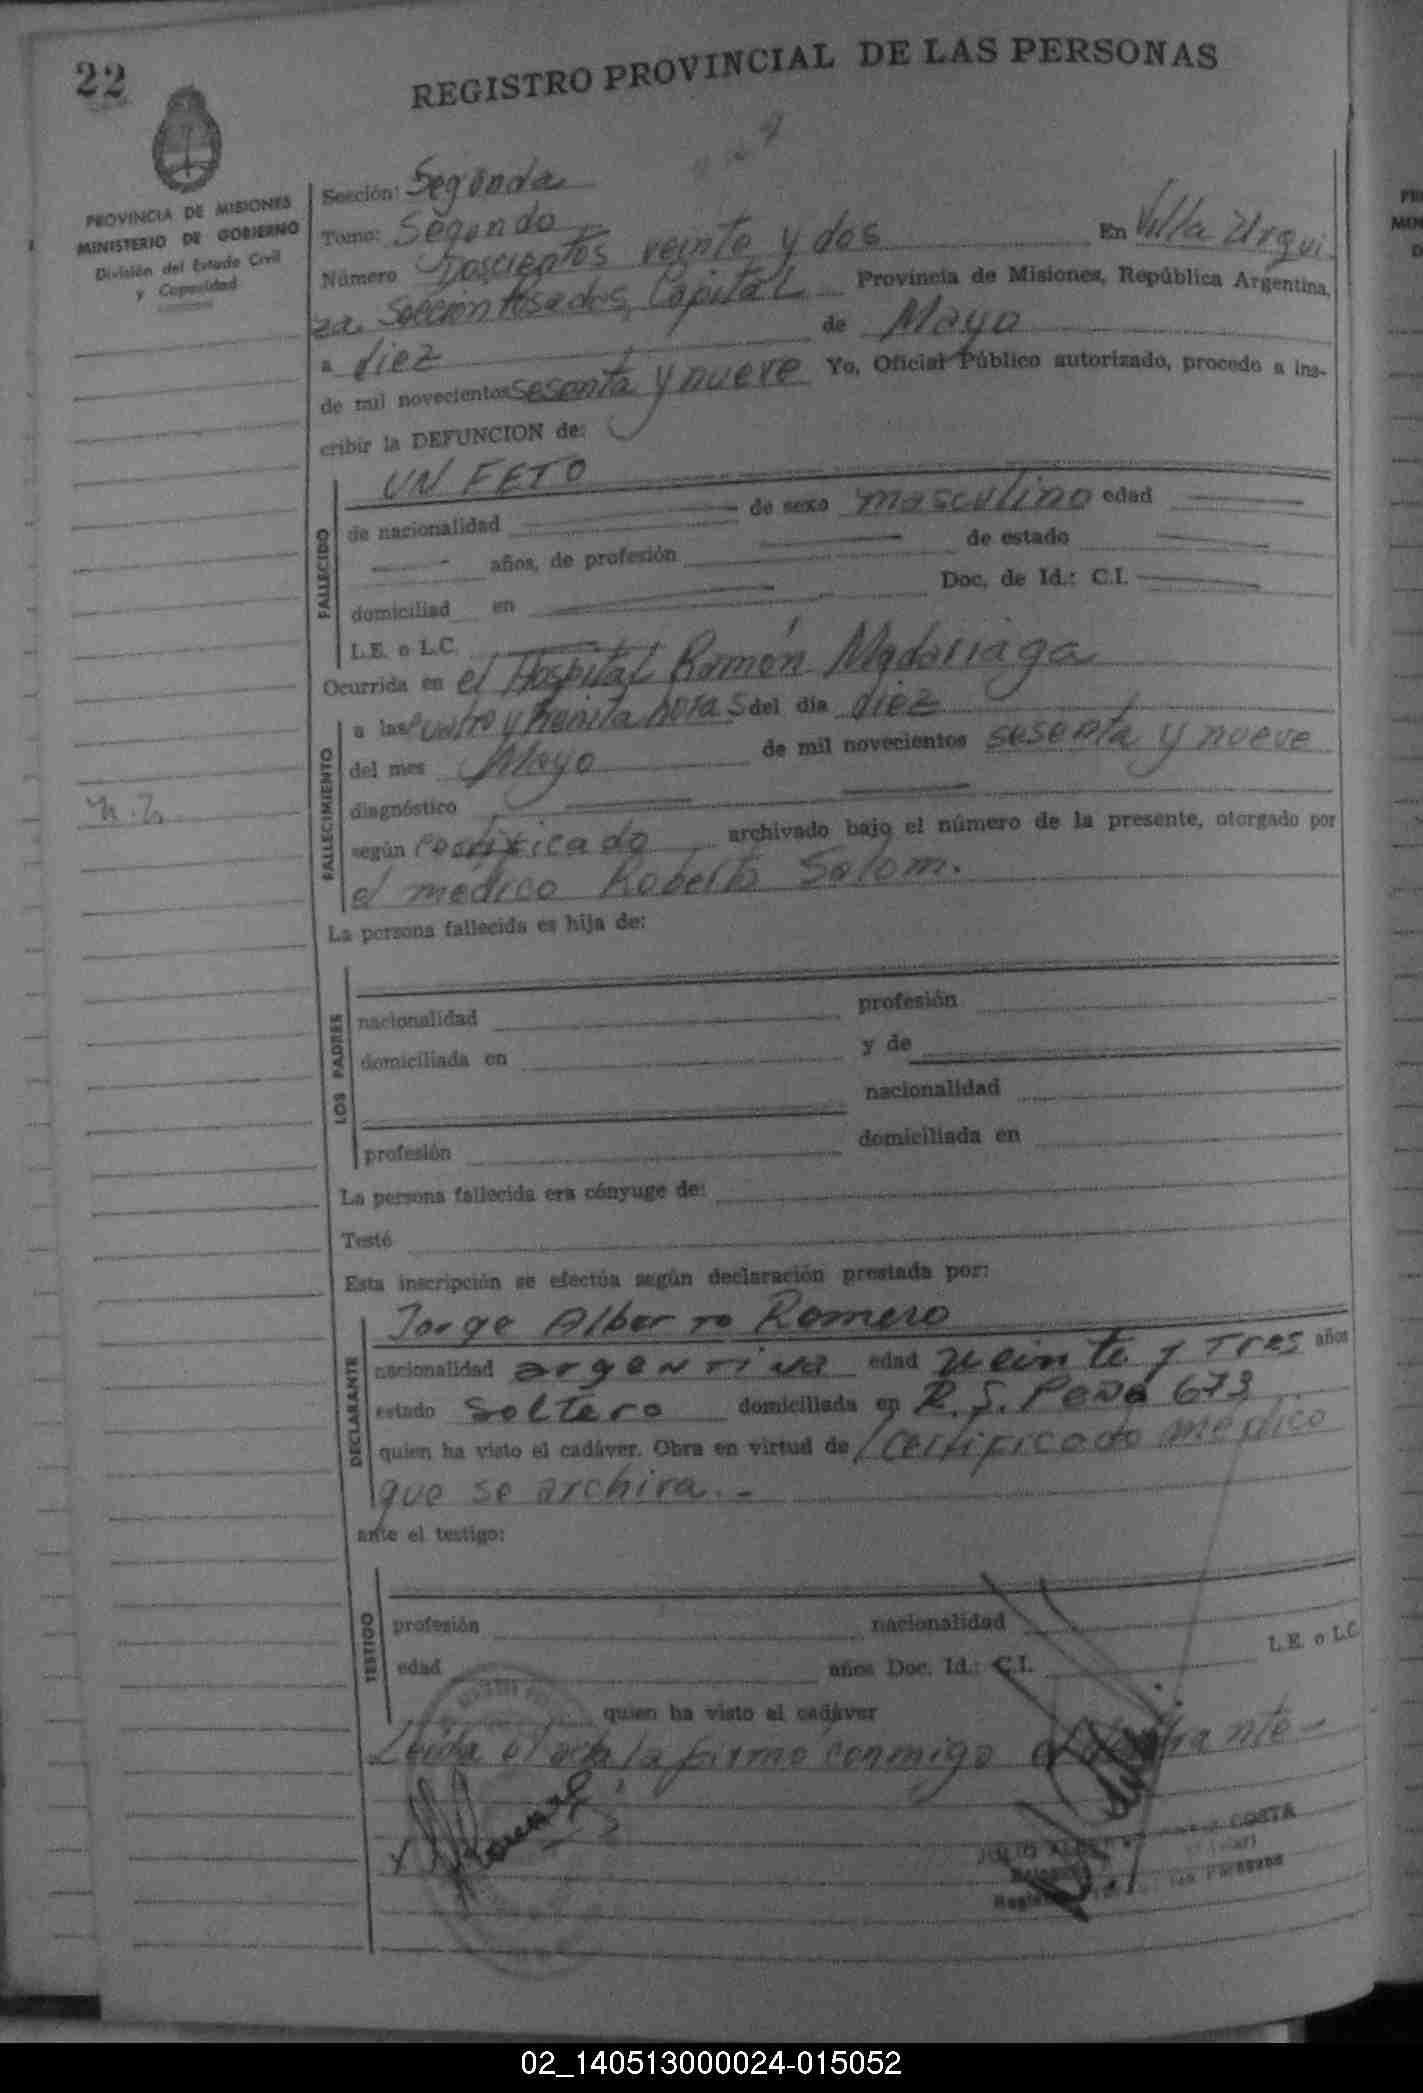 22
REGISTRO PROVINCIAL DE LAS PERSONAS
PROVINCIA DE MISIONES
MINISTERIO DE GOBIERNO
División del Estado Civil
y Capacidad
Sección: Segunda
Tomo: Segundo
Número Doscientos veinte y dos En Villa Urqui
za. Seccion Posadas, Capital Provincia de Misiones, República Argentina,
a diez de Mayo
de mil novecientos sesenta y nueve Yo, Oficial Público autorizado, procedo a ins-
cribir la DEFUNCION de:
UN FETO
FALLECIDO
de nacionalidad de sexo masculino edad
años, de profesión de estado
domiciliad en Doc. de Id.: C.I.
L.E. o L.C.
Ocurrida en el Hospital Ramón Madariaga
FALLECIMIENTO
a las cuatro y treinta horas del día diez
del mes Mayo de mil novecientos sesenta y nueve
diagnóstico
según certificado archivado bajo el número de la presente, otorgado por
el médico Roberto Salom.
La persona fallecida es hija de:
LOS PADRES
nacionalidad profesión
domiciliada en y de
nacionalidad
profesión domiciliada en
La persona fallecida era cónyuge de:
Testó
Esta inscripción se efectúa según declaración prestada por:
DECLARANTE
Jorge Alberto Romero
nacionalidad argentina edad veinte y Tres años
estado Soltero domiciliada en R. S. Peña 673
quien ha visto el cadáver. Obra en virtud de certificado médico
que se archiva.-
ante el testigo:
TESTIGO
profesión nacionalidad
edad años Doc. Id.: C.I. L.E. o L.C.
quien ha visto el cadáver
Leida el acta la firmó conmigo el declarante-
COSTA
02_140513000024-015052